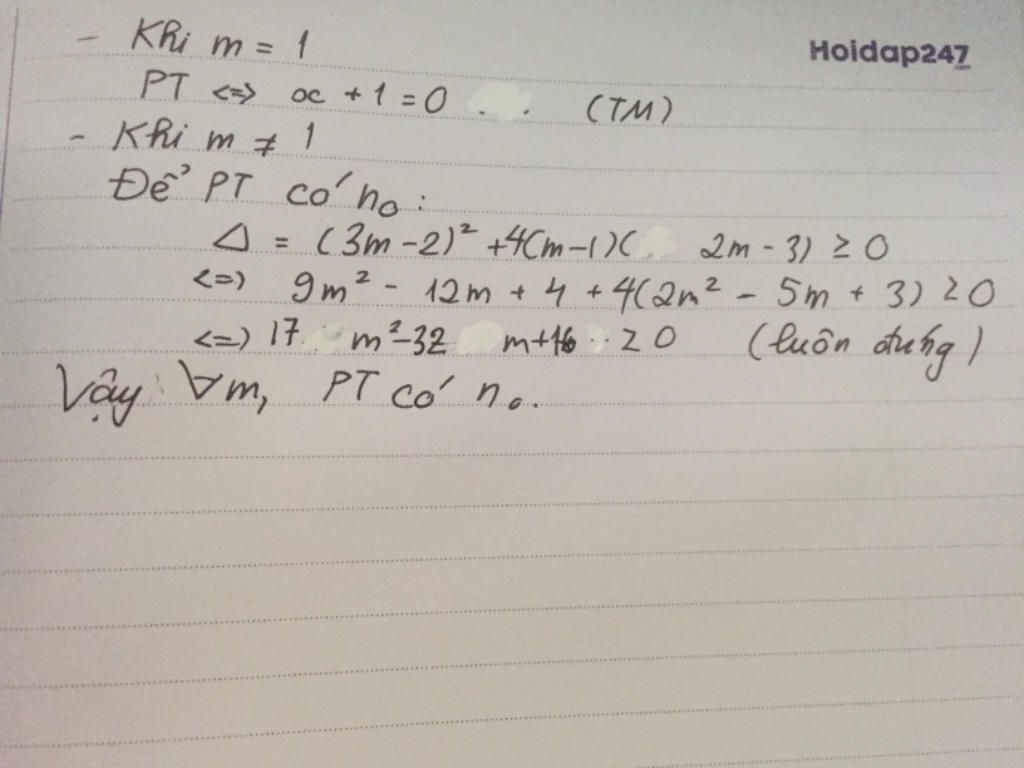 - Khi m = 1
Hoidap247.com
PT <=> x + 1 = 0 . . (TM)
- Khi m ≠ 1
Để PT có no:
Δ = (3m - 2)² + 4(m - 1)( 2m - 3) ≥ 0
<=> 9m² - 12m + 4 + 4(2m² - 5m + 3) ≥ 0
<=> 17 m² - 32 m + 16 ≥ 0 (luôn đúng)
Vậy ∀m, PT có no.